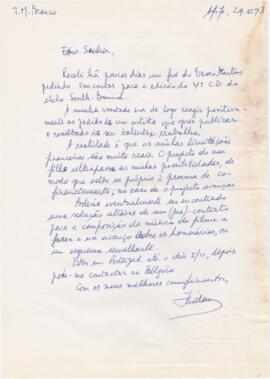 J.M. Branco
Afife, 29.10.93
Exmo. Senhor,
Recebi há poucos dias um fax do Vasco Martins
pedindo 500 contos para a edição do 4º CD do
ciclo
A minha vontade era de logo reagir positiva-
mente ao pedido de um artista que quer publicar
o resultado do seu talento e trabalho.
A realidade é que as minhas limitações
financeiras são muito reais. O projecto do meu
filho ultrapassa as minhas possibilidades, de
modo que estou eu próprio à procura de co-
financiamento, no caso de o projecto avançar.
Poderia eventualmente ser encontrada
uma solução através de um (pre)-contrato
para a composição da música do filme a
fazer e um avanço sobre os honorários, ou
um esquema semelhante.
Estou em Portugal até o dia 5/11, depois
pode-me contactar na Bélgica.
Com os meus melhores cumprimentos,